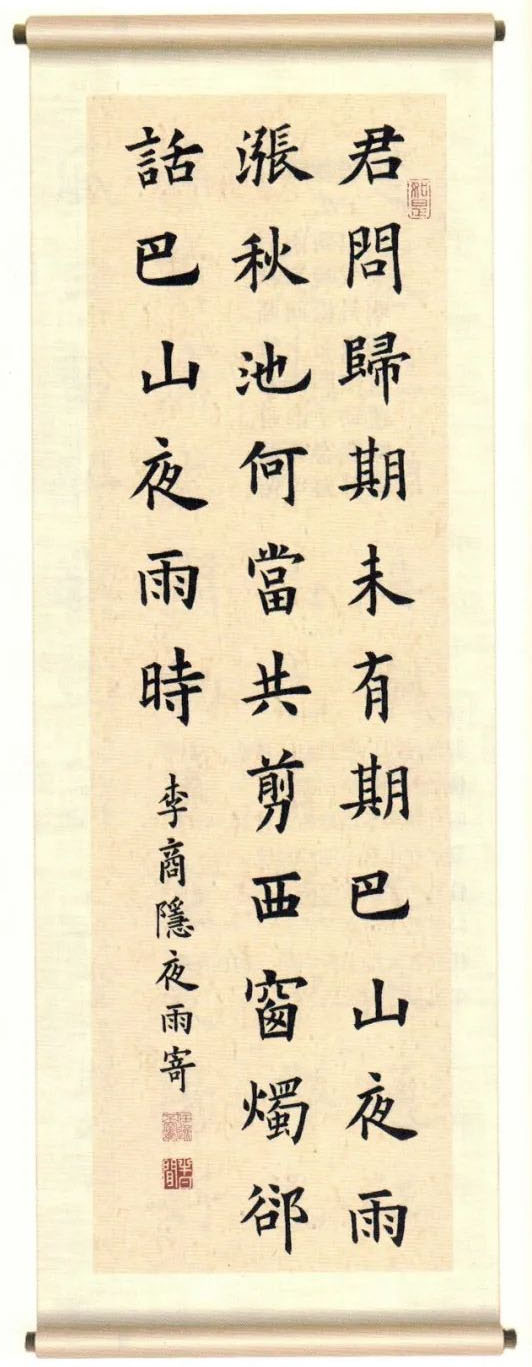 如是
君問歸期未有期巴山夜雨
漲秋池何當共剪西窗燭郤
話巴山夜雨時
李商隱夜雨寄